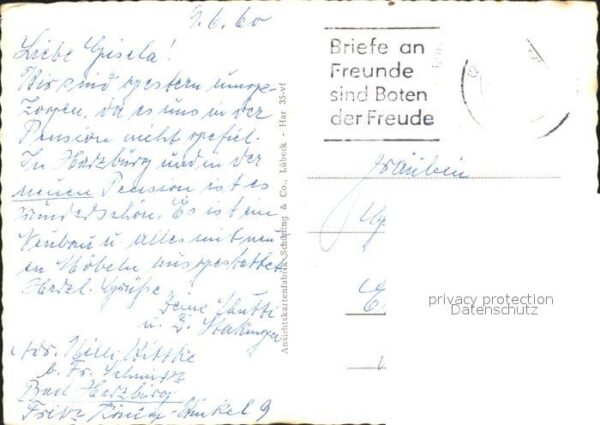 9.6.60
Liebe Gisela!
Wir sind gestern umge-
zogen, da es uns in der
Pension nicht gefiel.
In Harzburg und in der
neuen Pension ist es
wunderschön. Es ist ein
Neubau u. alles mit neu-
en Möbeln ausgestattet.
Herzl. Grüße
Deine Mutti
u. D.
Adr. Willi Wittke
b. Fr. Schmidt
Bad Harzburg
Fritz König-Winkel 9
Ansichtskartenfabrik Schöning & Co., Lübeck · Har 35-vf
Briefe an
Freunde
sind Boten
der Freude
Fräulein
privacy protection
Datenschutz